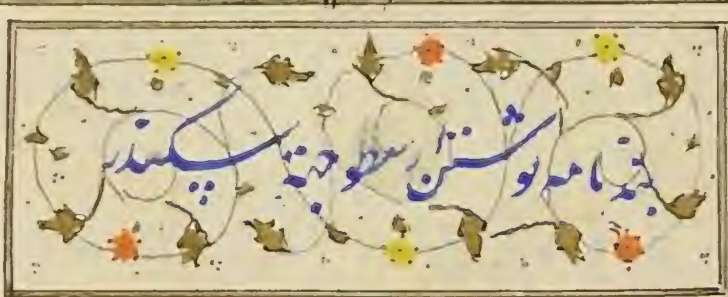 پند نامه نوشتن ارسطو جهة سکندر